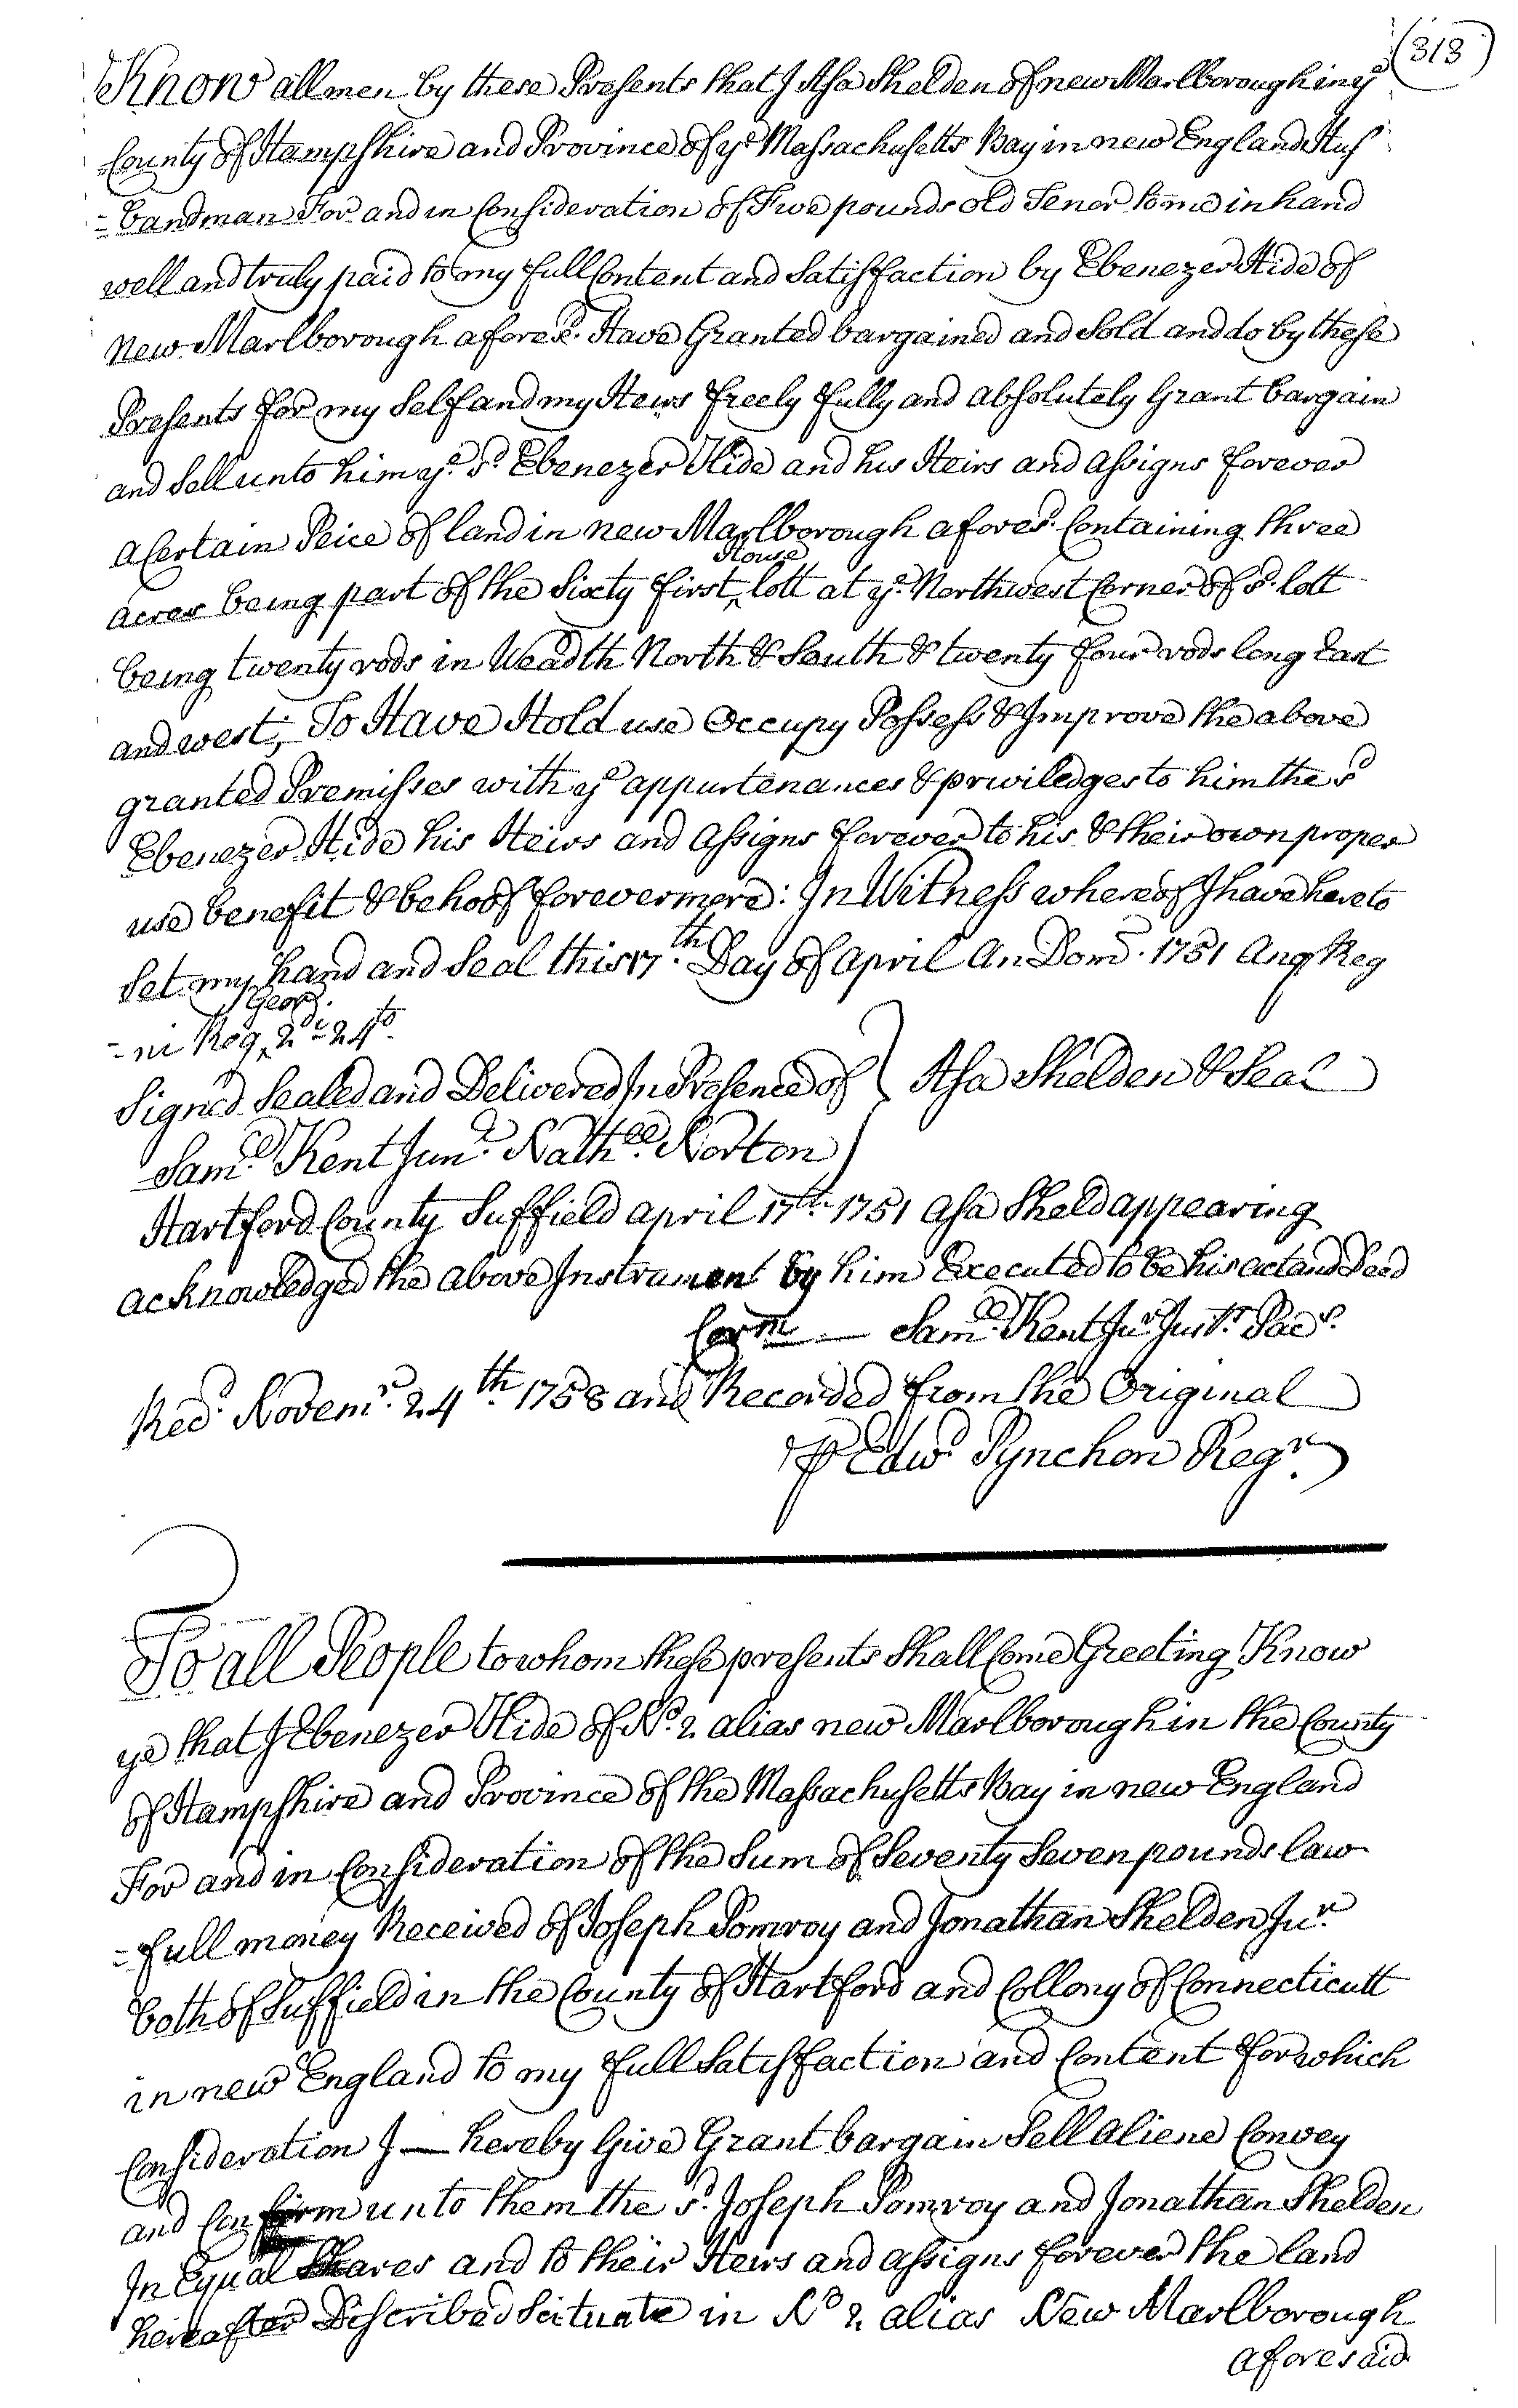 (313)
Know all men by these Presents that I Asa Shelden of new Marlborough in ye
County of Hampshire and Province of ye Massachusetts Bay in new England Hus
=bandman For and in Consideration of Five pounds old Tenor to me in hand
well and truly paid to my full Content and Satisfaction by Ebenezer Hide of
New Marlborough afores.d Have Granted bargained and Sold and do by these
Presents for my Self and my Heirs freely fully and absolutely Grant bargain
and Sell unto him ye sd Ebenezer Hide and his Heirs and assigns forever
a Certain Peice of land in new Marlborough afores.d Containing three
House
acres being part of the Sixty first ‸ lott at ye Northwest Corner of sd lott
being twenty rods in Weadth North & South & twenty four rods long East
and west; To Have Hold use Occupy Possess & Improve the above
granted Premisses with ye appurtenances & priviledges to him the sd
Ebenezer Hide his Heirs and assigns forever to his & their own proper
use benefit & behoof forevermore: In Witness whereof I have hereto
Set my hand and Seal this 17.th Day of april An Dom. 1751 Anq Reg
Geor.
=ni Reg ‸ 2di 24to
Signed Sealed and Delivered In Presence of } Asa Shelden & Seal
Sam.ll Kent Jun.r Nath.ll Norton
Hartford County Suffield april 17th 1751 asa Sheld appearing
acknowledged the above Instrument by him Executed to be his act and Deed
Corm — Sam.ll Kent Jur Just. Pac.s
Rec.d Novem.r 24th 1758 and Recorded from the Original
⅌ Edw.d Pynchon Reg.r
To all People to whom these presents Shall Come Greeting Know
ye that I Ebenezer Hide of No. 2 alias new Marlborough in the County
of Hampshire and Province of the Massachusetts Bay in new England
For and in Consideration of the Sum of Seventy Seven pounds law
=full money Received of Joseph Pomroy and Jonathan Shelden Jur.
both of Suffield in the County of Hartford and Collony of Connecticutt
in new England to my full Satisfaction and Content for which
Consideration I — hereby Give Grant bargain Sell aliene Convey
and Confirm unto them the sd Joseph Pomroy and Jonathan Shelden
In Equal Shares and to their Heirs and assigns forever the land
hereafter Discribed Scituate in No 2 alias New Marlborough
aforesaid